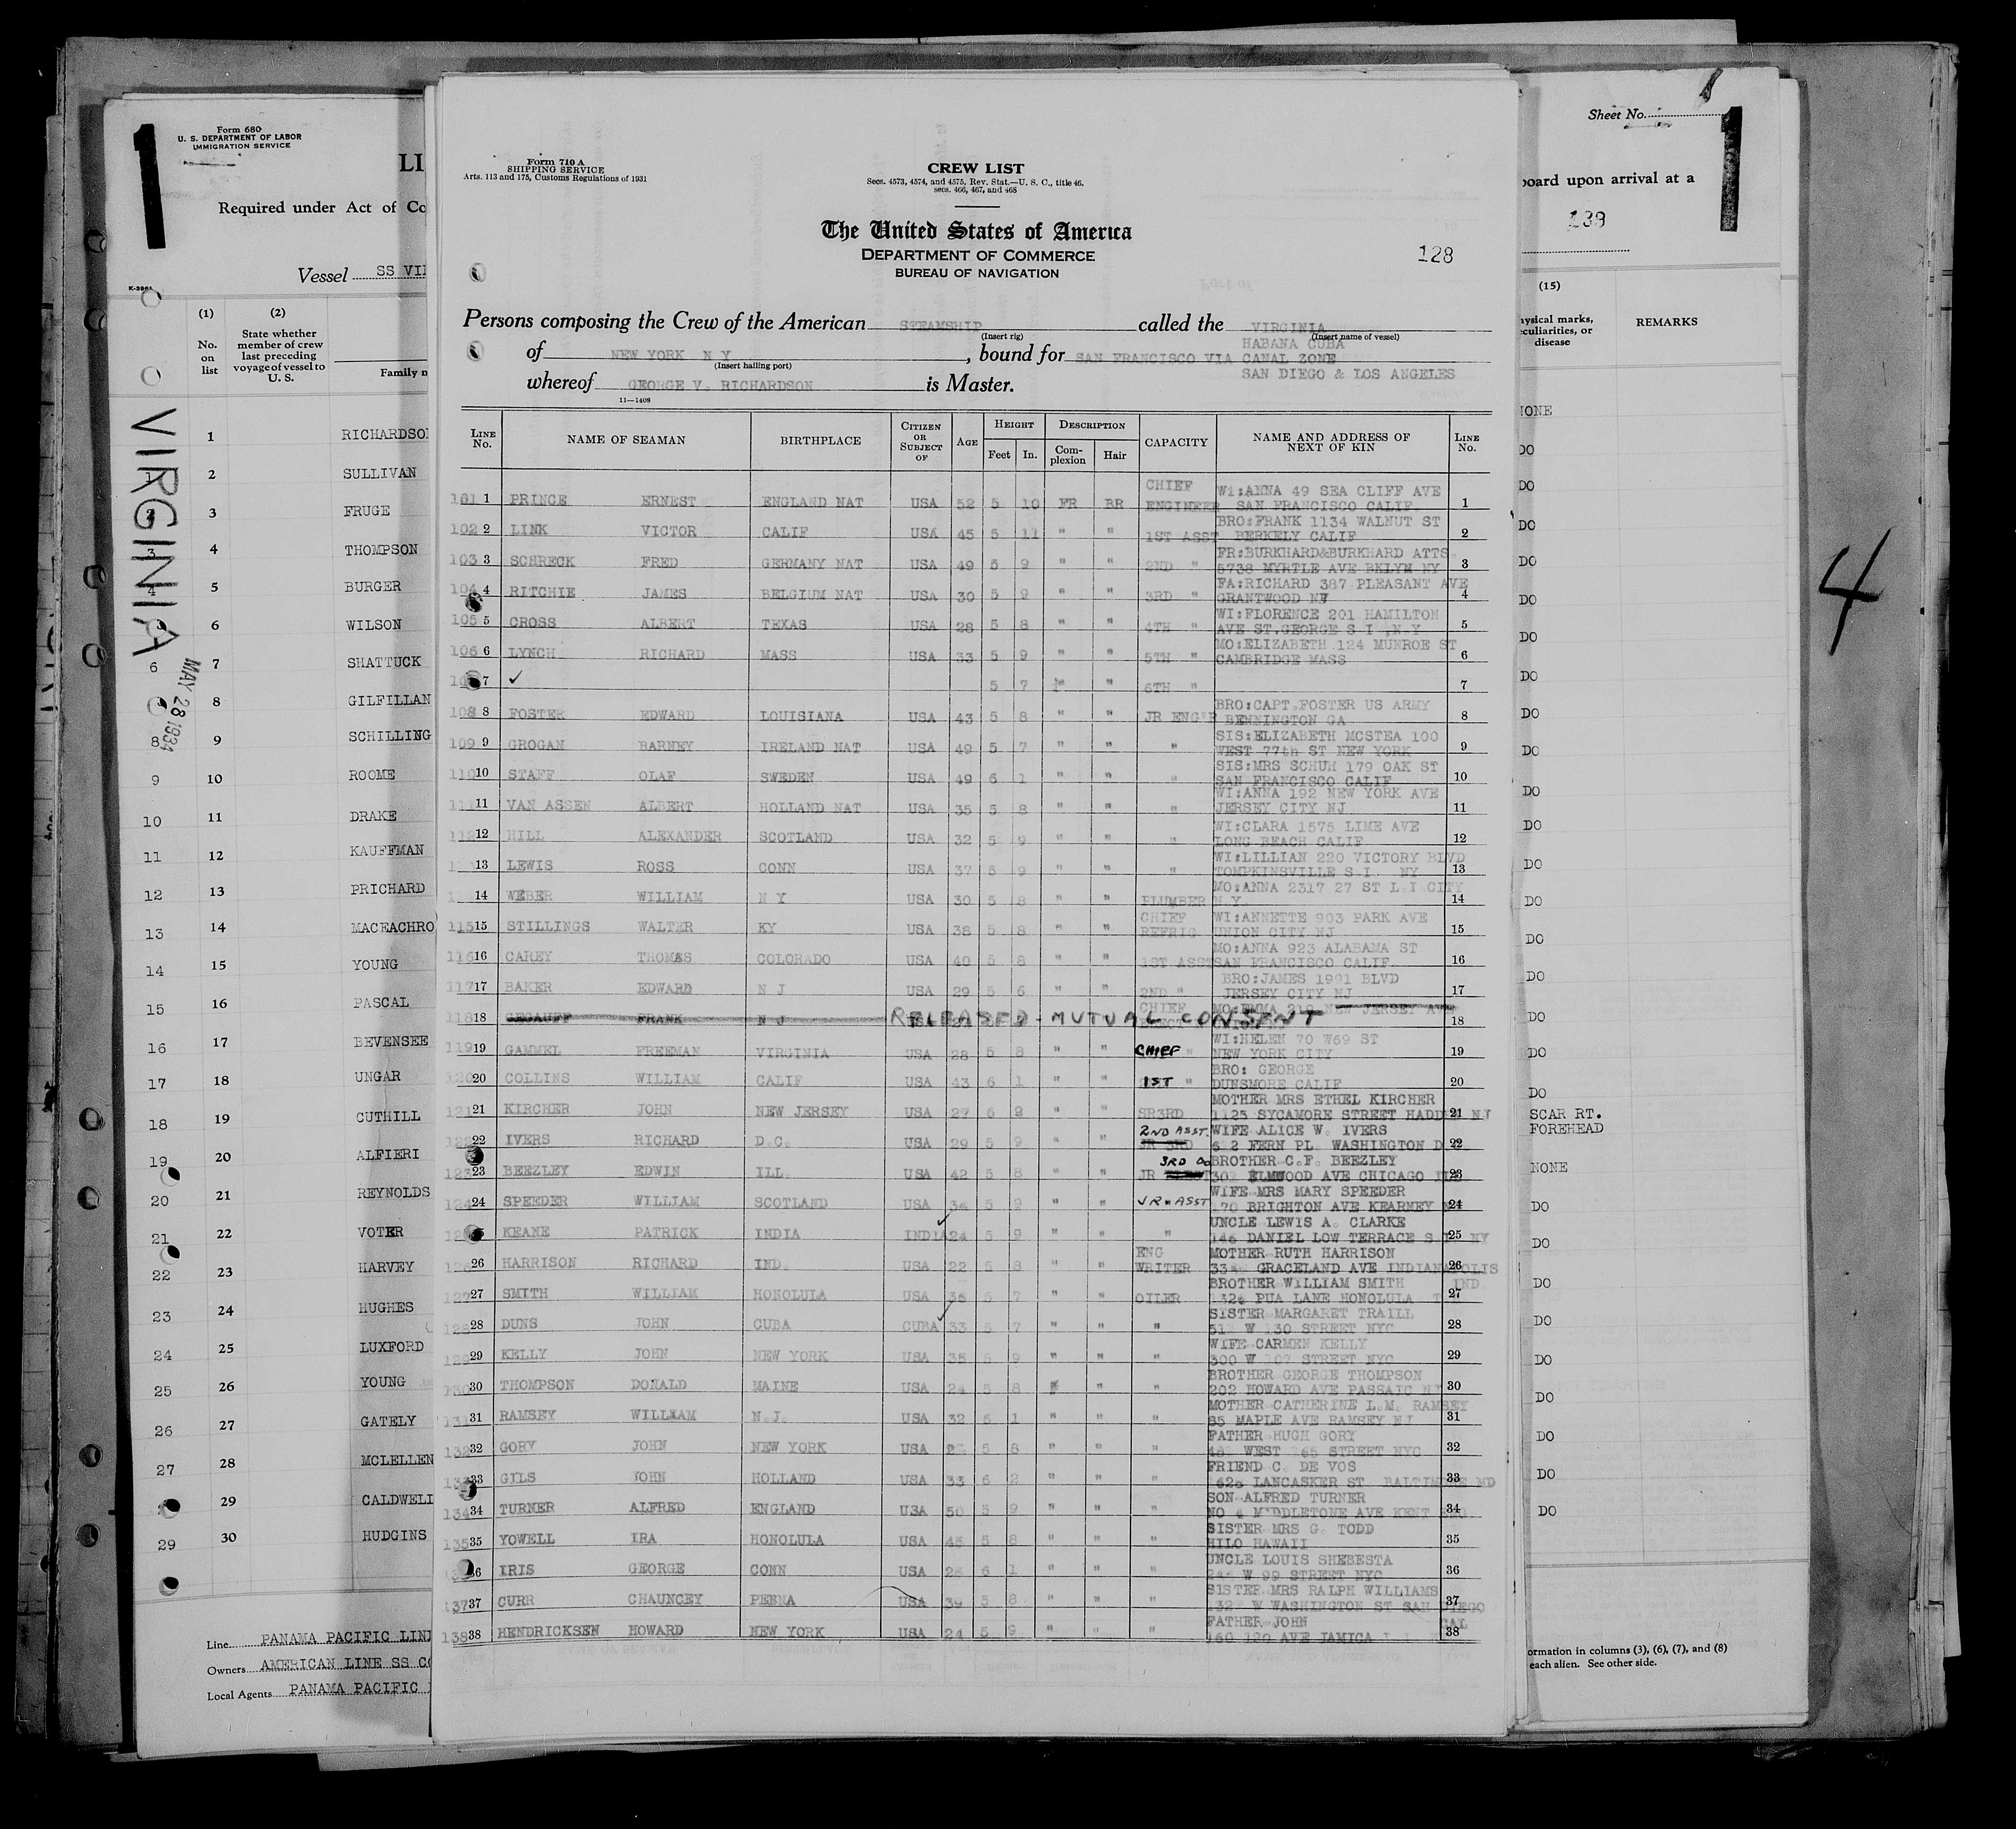 Form 680
U. S. DEPARTMENT OF LABOR
IMMIGRATION SERVICE
LI
Required under Act of Co
Vessel SS VI
K-3901
(1) (2)
No. on list
State whether member of crew last preceding voyage of vessel to U. S.
Family n
VIRGINIA
MAY 28 1934
1 RICHARDSO
1 2 SULLIVAN
2 3 FRUGE
3 4 THOMPSON
4 5 BURGER
6 WILSON
6 7 SHATTUCK
8 GILFILLAN
8 9 SCHILLING
9 10 ROOME
10 11 DRAKE
11 12 KAUFFMAN
12 13 PRICHARD
13 14 MACEACHRO
14 15 YOUNG
15 16 PASCAL
16 17 BEVENSEE
17 18 UNGAR
18 19 CUTHILL
19 20 ALFIERI
20 21 REYNOLDS
21 22 VOTER
22 23 HARVEY
23 24 HUGHES
24 25 LUXFORD
25 26 YOUNG
26 27 GATELY
27 28 MCLELLEN
29 CALDWELL
29 30 HUDGINS
Line PANAMA PACIFIC LINE
Owners AMERICAN LINE SS CO
Local Agents PANAMA PACIFIC
Form 710 A
SHIPPING SERVICE
Arts. 113 and 175, Customs Regulations of 1931
CREW LIST
Secs. 4573, 4574, and 4575, Rev. Stat.—U. S. C., title 46,
secs. 466, 467, and 468
The United States of America
DEPARTMENT OF COMMERCE
BUREAU OF NAVIGATION
128
Persons composing the Crew of the American STEAMSHIP called the VIRGINIA
(Insert rig) (Insert name of vessel)
HABANA CUBA
of NEW YORK N Y, bound for SAN FRANCISCO VIA CANAL ZONE
(Insert hailing port)
SAN DIEGO & LOS ANGELES
whereof GEORGE V. RICHARDSON is Master.
11—1408
LINE No. NAME OF SEAMAN BIRTHPLACE CITIZEN OR SUBJECT OF AGE HEIGHT Feet In. DESCRIPTION Complexion Hair CAPACITY NAME AND ADDRESS OF NEXT OF KIN LINE No.
101 1 PRINCE ERNEST ENGLAND NAT USA 52 5 10 FR BR CHIEF ENGINEER WI:ANNA 49 SEA CLIFF AVE SAN FRANCISCO CALIF. 1
102 2 LINK VICTOR CALIF USA 45 5 11 " " 1ST ASST BRO:FRANK 1134 WALNUT ST BERKELY CALIF 2
103 3 SCHRECK FRED GERMANY NAT USA 49 5 9 " " 2ND " FR:BURKHARD&BURKHARD ATTS. 5738 MYRTLE AVE BKLYN NY 3
104 4 RITCHIE JAMES BELGIUM NAT USA 30 5 9 " " 3RD " FA:RICHARD 387 PLEASANT AVE GRANTWOOD NJ 4
105 5 CROSS ALBERT TEXAS USA 28 5 8 " " 4TH " WI:FLORENCE 201 HAMILTON AVE ST.GEORGE S I ,N.Y 5
106 6 LYNCH RICHARD MASS USA 33 5 9 " " 5TH " MO:ELIZABETH 124 MUNROE ST CAMBRIDGE MASS 6
7 ✓ 5 7 " " 6TH " 7
108 8 FOSTER EDWARD LOUISIANA USA 43 5 8 " " JR ENG'R BRO:CAPT.FOSTER US ARMY BENNINGTON GA 8
109 9 GROGAN BARNEY IRELAND NAT USA 49 5 7 " " " SIS:ELIZABETH MCSTEA 100 WEST 77th ST NEW YORK 9
110 10 STAFF OLAF SWEDEN USA 49 6 1 " " " SIS:MRS SCHUH 179 OAK ST SAN FRANCISCO CALIF 10
111 11 VAN ASSEN ALBERT HOLLAND NAT USA 35 5 8 " " " WI:ANNA 192 NEW YORK AVE JERSEY CITY NJ 11
112 12 HILL ALEXANDER SCOTLAND USA 32 5 9 " " " WI:CLARA 1575 LIME AVE LONG BEACH CALIF 12
13 LEWIS ROSS CONN USA 37 5 9 " " " WI:LILLIAN 220 VICTORY BLVD TOMPKINSVILLE S.I. NY 13
14 WEBER WILLIAM N Y USA 30 5 8 " " PLUMBER MO:ANNA 2317 27 ST L.I.CITY N Y. 14
115 15 STILLINGS WALTER KY USA 38 5 8 " " CHIEF REFRIG WI:ANNETTE 903 PARK AVE UNION CITY NJ 15
116 16 CAREY THOMAS COLORADO USA 40 5 8 " " 1ST ASST MO:ANNA 923 ALABAMA ST SAN FRANCISCO CALIF. 16
117 17 BAKER EDWARD N J USA 29 5 6 " " 2ND " BRO:JAMES 1991 BLVD JERSEY CITY NJ 17
118 18 FRANK N J RELEASED - MUTUAL CONSENT CHIEF MO:EMMA NEW JERSEY AVE 18
119 19 GAMMEL FREEMAN VIRGINIA USA 28 5 8 " " CHIEF " WI:HELEN 70 W69 ST NEW YORK CITY 19
20 COLLINS WILLIAM CALIF USA 43 6 1 " " 1ST " BRO: GEORGE DUNSMORE CALIF 20
121 21 KIRCHER JOHN NEW JERSEY USA 27 6 2 " " SR3RD MOTHER MRS ETHEL KIRCHER 1125 SYCAMORE STREET HADD NJ 21
22 IVERS RICHARD D.C. USA 29 5 9 " " 2ND ASST. JR 3RD WIFE ALICE W. IVERS FERN PL. WASHINGTON D 22
123 23 BEEZLEY EDWIN ILL. USA 42 5 8 " " 3RD DO JR BROTHER C.F. BEEZLEY ELMWOOD AVE CHICAGO 23
124 24 SPEEDER WILLIAM SCOTLAND USA 34 5 9 " " JR " ASST WIFE MRS MARY SPEEDER 170 BRIGHTON AVE KEARNEY 24
KEANE PATRICK INDIA INDIA 24 5 9 " " " UNCLE LEWIS A. CLARKE 146 DANIEL LOW TERRACE S NY 25
26 HARRISON RICHARD IND. USA 22 5 8 " " ENG WRITER MOTHER RUTH HARRISON GRACELAND AVE INDIANAPOLIS IND 26
127 27 SMITH WILLIAM HONOLULA USA 36 5 7 " " OILER BROTHER WILLIAM SMITH PUA LANE HONOLULA 27
128 28 DUNS JOHN CUBA CUBA 33 5 7 " " " SISTER MARGARET TRAILL W 130 STREET NYC 28
29 KELLY JOHN NEW YORK USA 35 5 9 " " " WIFE CARMEN KELLY 300 W 107 STREET NYC 29
130 30 THOMPSON DONALD MAINE USA 24 5 8 " " " BROTHER GEORGE THOMPSON 202 HOWARD AVE PASSAIC N 30
131 31 RAMSEY WILLIAM N.J. USA 32 6 1 " " " MOTHER CATHERINE L.M. RAMSEY 85 MAPLE AVE RAMSEY NJ 31
132 32 GORY JOHN NEW YORK USA 5 8 " " " FATHER HUGH GORY WEST 165 STREET NYC 32
33 GILS JOHN HOLLAND USA 33 6 2 " " " FRIEND C. DE VOS LANCASKER ST. BALTIMORE MD 33
134 34 TURNER ALFRED ENGLAND USA 50 5 9 " " " SON ALFRED TURNER NO 4 MIDDLETOME AVE KENT 34
135 35 YOWELL IRA HONOLULA USA 45 5 8 " " " SISTER MRS G. TODD HILO HAWAII 35
36 IRIS GEORGE CONN USA 25 6 1 " " " UNCLE LOUIS SHEBESTA W 99 STREET NYC 36
137 37 CURR CHAUNCEY PENNA USA 39 5 8 " " " SISTER MRS RALPH WILLIAMS W WASHINGTON ST SAN DIEGO CAL 37
138 38 HENDRICKSEN HOWARD NEW YORK USA 24 5 9 " " " FATHER JOHN 160 120 AVE JAMICA 38
Sheet No.
1
board upon arrival at a
138
(15)
ysical marks, culiarities, or disease
REMARKS
NONE
DO
DO
DO
DO
DO
DO
DO
DO
DO
DO
DO
DO
DO
DO
DO
DO
DO
DO
SCAR RT.
FOREHEAD
NONE
DO
DO
DO
DO
DO
DO
DO
DO
DO
ormation in columns (3), (6), (7), and (8)
each alien. See other side.
4